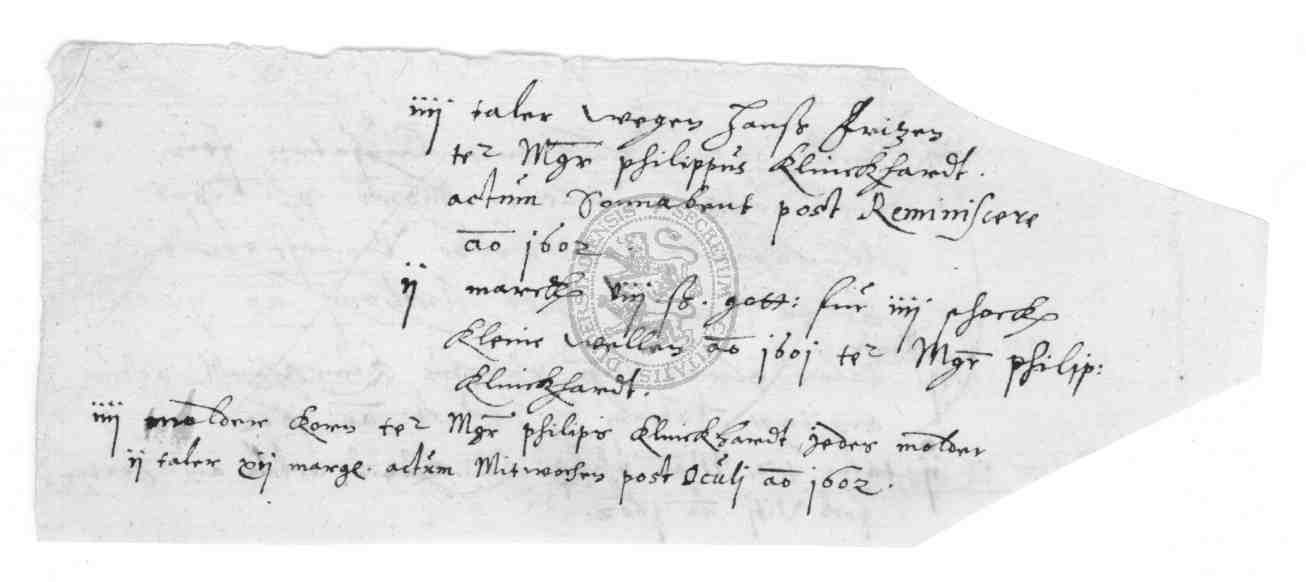 iiij taler wegen Hanß Fritzen
ter Mgr philippus Klinckhardt.
actum Sonnabent post Reminiscere
ao 1602
ij marck viij ß. gott: für iiij schock
Kleine Wellen ao 1601 ter Mgr philip:
Klinckhardt.
iiij molder Korn ter Mgr philips Klinckhardt jedes molder
ij taler xij margl. actum Mitwochen post Oculj ao 1602.
SECRETUM